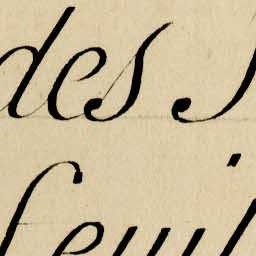 des
feuil